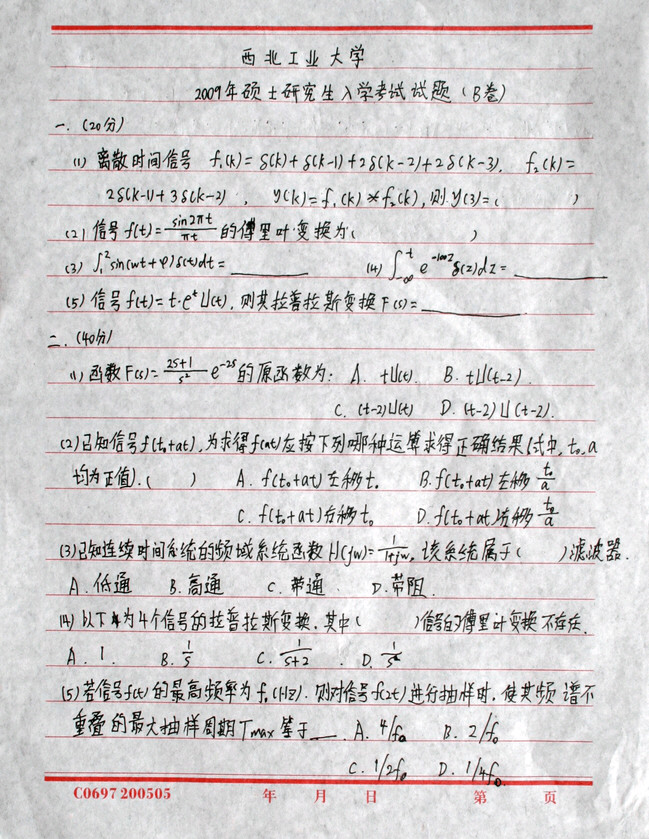 西北工业大学
2009年硕士研究生入学考试试题（B卷）
一.（20分）
(1) 离散时间信号 f₁(k)=δ(k)+δ(k-1)+2δ(k-2)+2δ(k-3). f₂(k)=
2δ(k-1)+3δ(k-2), y(k)=f₁(k)*f₂(k), 则y(3)=( )
(2) 信号f(t)=sin2πt/πt的傅里叶变换为( )
(3) ∫₁²sin(wt+φ)δ(t)dt=________ (4) ∫₋∞ᵗ e^-100z δ(z)dz=________
(5) 信号f(t)=t·eᵗU(t), 则其拉普拉斯变换F(s)=________
二.（40分）
(1) 函数F(s)=2s+1/s² e^-2s的原函数为: A. tU(t). B. tU(t-2).
C. (t-2)U(t) D. (t-2)U(t-2).
(2)已知信号f(t₀+at),为求得f(at)应按下列哪种运算求得正确结果(式中,t₀,a
均为正值).( ) A. f(t₀+at)左移t₀ B. f(t₀+at)左移t₀/a
C. f(t₀+at)右移t₀ D. f(t₀+at)右移t₀/a
(3)已知连续时间系统的频域系统函数H(jw)=1/1+jw, 该系统属于( )滤波器.
A. 低通 B. 高通 C. 带通 D. 带阻.
(4) 以下为4个信号的拉普拉斯变换.其中( )信号的傅里叶变换不存在.
A. 1. B. 1/s C. 1/s+2 . D. 1/s²
(5)若信号f(t)的最高频率为f₀(Hz).则对信号f(2t)进行抽样时,使其频谱不
重叠的最大抽样周期Tmax等于__. A. 4/f₀ B. 2/f₀
C. 1/2f₀ D. 1/4f₀.
C0697 200505 年 月 日 第 页